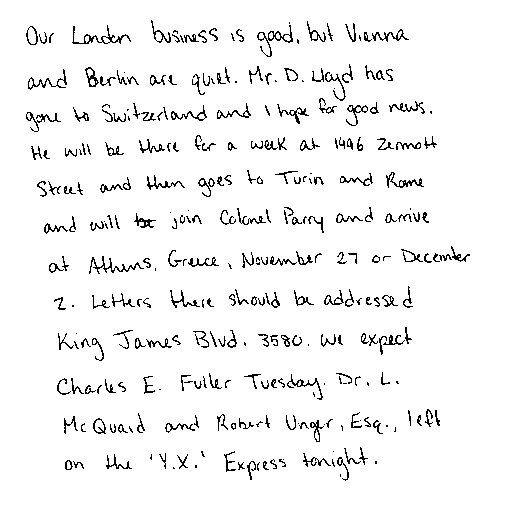 Our London business is good, but Vienna
and Berlin are quiet. Mr. D. Lloyd has
gone to Switzerland and I hope for good news.
He will be there for a week at 1496 Zermott
Street and then goes to Turin and Rome
and will join Colonel Parry and arrive
at Athens, Greece, November 27 or December
2. Letters there should be addressed
King James Blvd. 3580. We expect
Charles E. Fuller Tuesday. Dr. L.
McQuaid and Robert Unger, Esq., left
on the 'Y.X.' Express tonight.